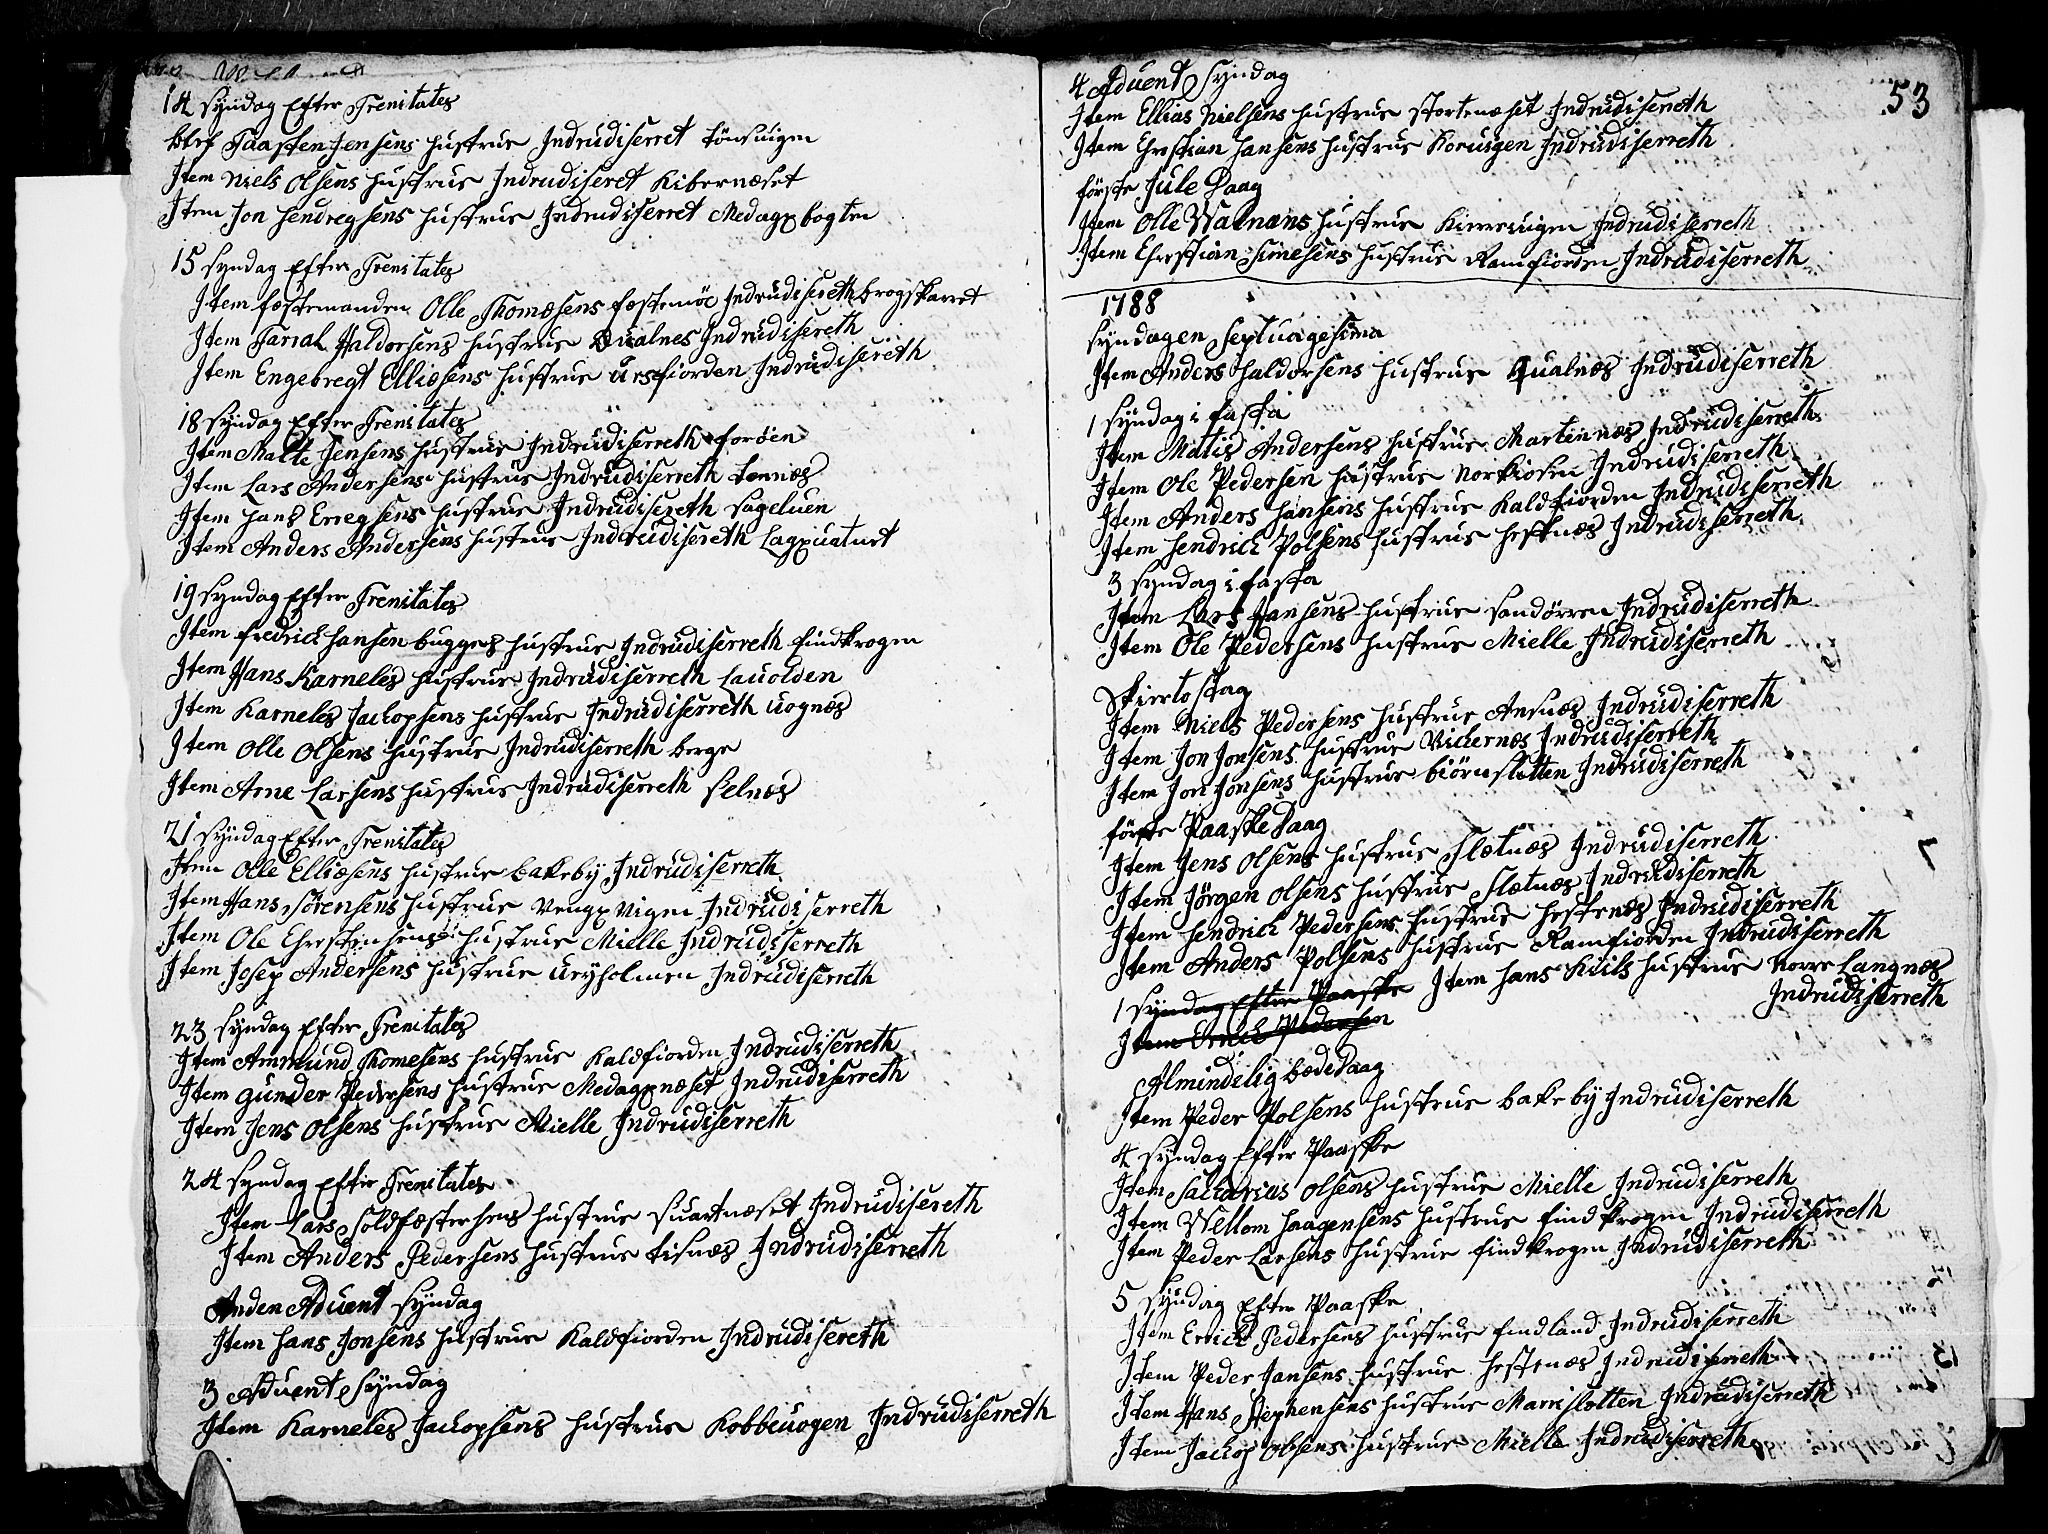 14 Syndag Efter Trenitates
Blef Taasten Jensens hustrue Indrudiserret tönsuigen
Item Niels Olsens hustrue Indrudiseret Kibernæset
Item Jon Hendregsens hustrue Indrudiserret Medagxbogten
15 Syndag Efter Trenitates
Item festemanden Olle Thomæsens festemöe Indrudisereth brogskarret
Item Tarral Haldorsens hustrue Qualnes Indrudisereth
Item Engebregt Elliæsens hustrue Ursfiorden Indrudisereth
18 Syndag Efter Trenitates
Item Malte Jensens hustrue Indrudiserreth foröen
Item Lars Andersens hustrue Indrudiserreth tennæs
Item Hans Erregsens hustrue Indrudisereth Sageluen
Item Anders Andersens hustrue Indrudisereth Lagxuatnet
19 Syndag Efter Trenitates
Item fredrich Hansen bugges hustrue Indrudiserreth findkrogen
Item Hans Karneles hustrue Indrudiserreth Lauolden
Item Karneles Jackopsens hustrue Indrudiserreth uognæs
Item Olle Olsens hustrue Indrudiserreth berge
Item Arne Larsens hustrue Indrudiserreth Selnæs
21 Syndag Efter Trenitates
Item Olle Elliæsens hustrue bakeby Indrudiserreth
Item Hans Sörensens hustrue Vengxvigen Indrudiserreth
Item Ole Chrestensens hustrue Mielle Indrudiserreth
Item Josep Andersens hustrue ureyholmen Indrudiserreth
23 Syndag Efter Trenitates
Item Ammund Thomesens hustrue Kaldfiorden Indrudiserreth
Item gunder Pedersens hustrue Medagxnæset Indrudiserreth
Item Jens Olsens hustrue Mielle Indrudiserreth
24 Syndag Efter Trenitates
Item Lars Soldfæstersens hustrue Suartnæset Indrudisereth
Item Anders Pedersens hustrue tisnæs Indrudiserreth
Anden Aduent Syndag
Item Hans Jonsens hustrue Kaldfiorden Indrudisereth
3 Aduent Syndag
Item Karneles Jackopsens hustrue Kobbeuogen Indrudiserreth
53
4 Aduent Syndag
Item Ellias Nielsens hustrue Stortenæset Indrudisereth
Item Chrestian Hansens hustrue Koruigen Indrudiserreth
förste Jule Daag
Item Olle Walnans hustrue Kirreuigen Indrudiserreth
Item Chrestian Simesens hustrue Ramfiorden Indrudiserreth
1788
Syndagen Septuagesima
Item Anders Haldorsens hustrue Qualnæs Indrudiserreth
1 Syndag i fasta
Item Matis Andersens hustrue Martennæs Indrudiserreth
Item Ole Pedersen hustrue Norkiosen Indrudiserreth
Item Anders Hansens hustrue Kaldfiorden Indrudiserreth
Item Hendrich Polsens hustrue hestnæs Indrudiserreth
3 Syndag i fasta
Item Lars Hansens hustrue Sandörren Indrudiserreth
Item Ole Pedersens hustrue Mielle Indrudiserreth
Skierto stag
Item Niels Pedersens hustrue Ansnæs Indrudiserreth
Item Jon Jonsens hustrue Vickernæs Indrudiserreth
Item Jon Jonsens hustrue biörnslotten Indrudiserreth
förste Paaske Daag
Item Jens Olsens hustrue Slætnæs Indrudiserreth
Item Jörgen Olsens hustrue Slætnæs Indrudiserreth
Item Hendrich Pedersens hustrue hestenæs Indrudiserreth
Item Anders Polsens hustrue Ramfiorden Indrudiserreth
1 Syndag Efter Paaske Item Hans Kiils hustrue Norre Langnæs
Indrudiserreth
Item Errick Pedersen
Almindelig bede Daag
Item Peder Polsens hustrue bakeby Indrudiserreth
4 Syndag Efter Paaske
Item Sackarias Olsens hustrue Mielle Indrudiserreth
Item Wellom Haagensens hustrue findkrogen Indrudiserreth
Item Peder Larsens hustrue findkrogen Indrudiserreth
5 Syndag Efter Paaske
Item Errick Pedersens hustrue findland Indrudiserreth
Item Peder Jansens hustrue hestenæs Indrudiserreth
Item Hans Stephensens hustrue Marrislotten Indrudiserreth
Item Jackop Olsens hustrue Mielle Indrudiserreth